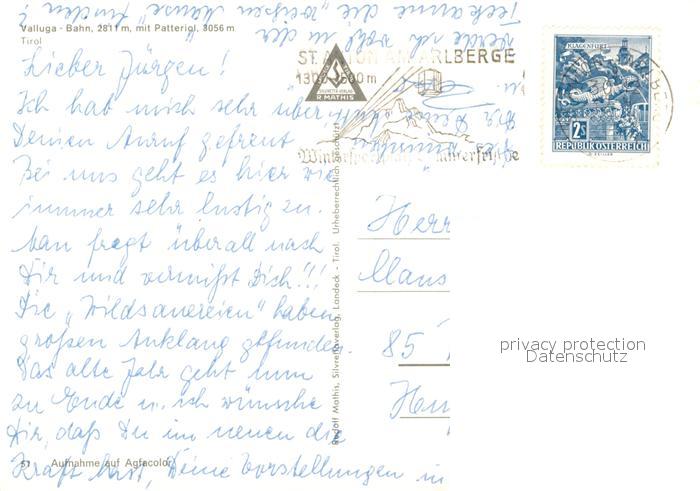 Valluga - Bahn, 2811 m, mit Patteriol, 3056 m
Tirol
Lieber Jürgen!
Ich hab mich sehr über
Deinen Anruf gefreut.
Bei uns geht es hier wie
immer sehr lustig zu.
Man fragt überall nach
Dir und vermißt Dich!!!
Die „Wildsauereien" haben
großen Anklang gefunden.
Das alte Jahr geht nun
zu Ende u. ich wünsche
Dir, daß Du im neuen die
Kraft hast, Deine Vorstellungen in
werde ich wohl in der
Teekanne die „weissen Mäuse" finden?
57 Aufnahme auf Agfacolor
Rudolf Mathis, Silvrettaverlag, Landeck - Tirol. Urheberrechtlich geschützt
SILVRETTA-VERLAG
R. MATHIS
ST. ANTON AM ARLBERG
1300-2500 m
KLAGENFURT
2 S
REPUBLIK ÖSTERREICH
Herr
85
privacy protection
Datenschutz